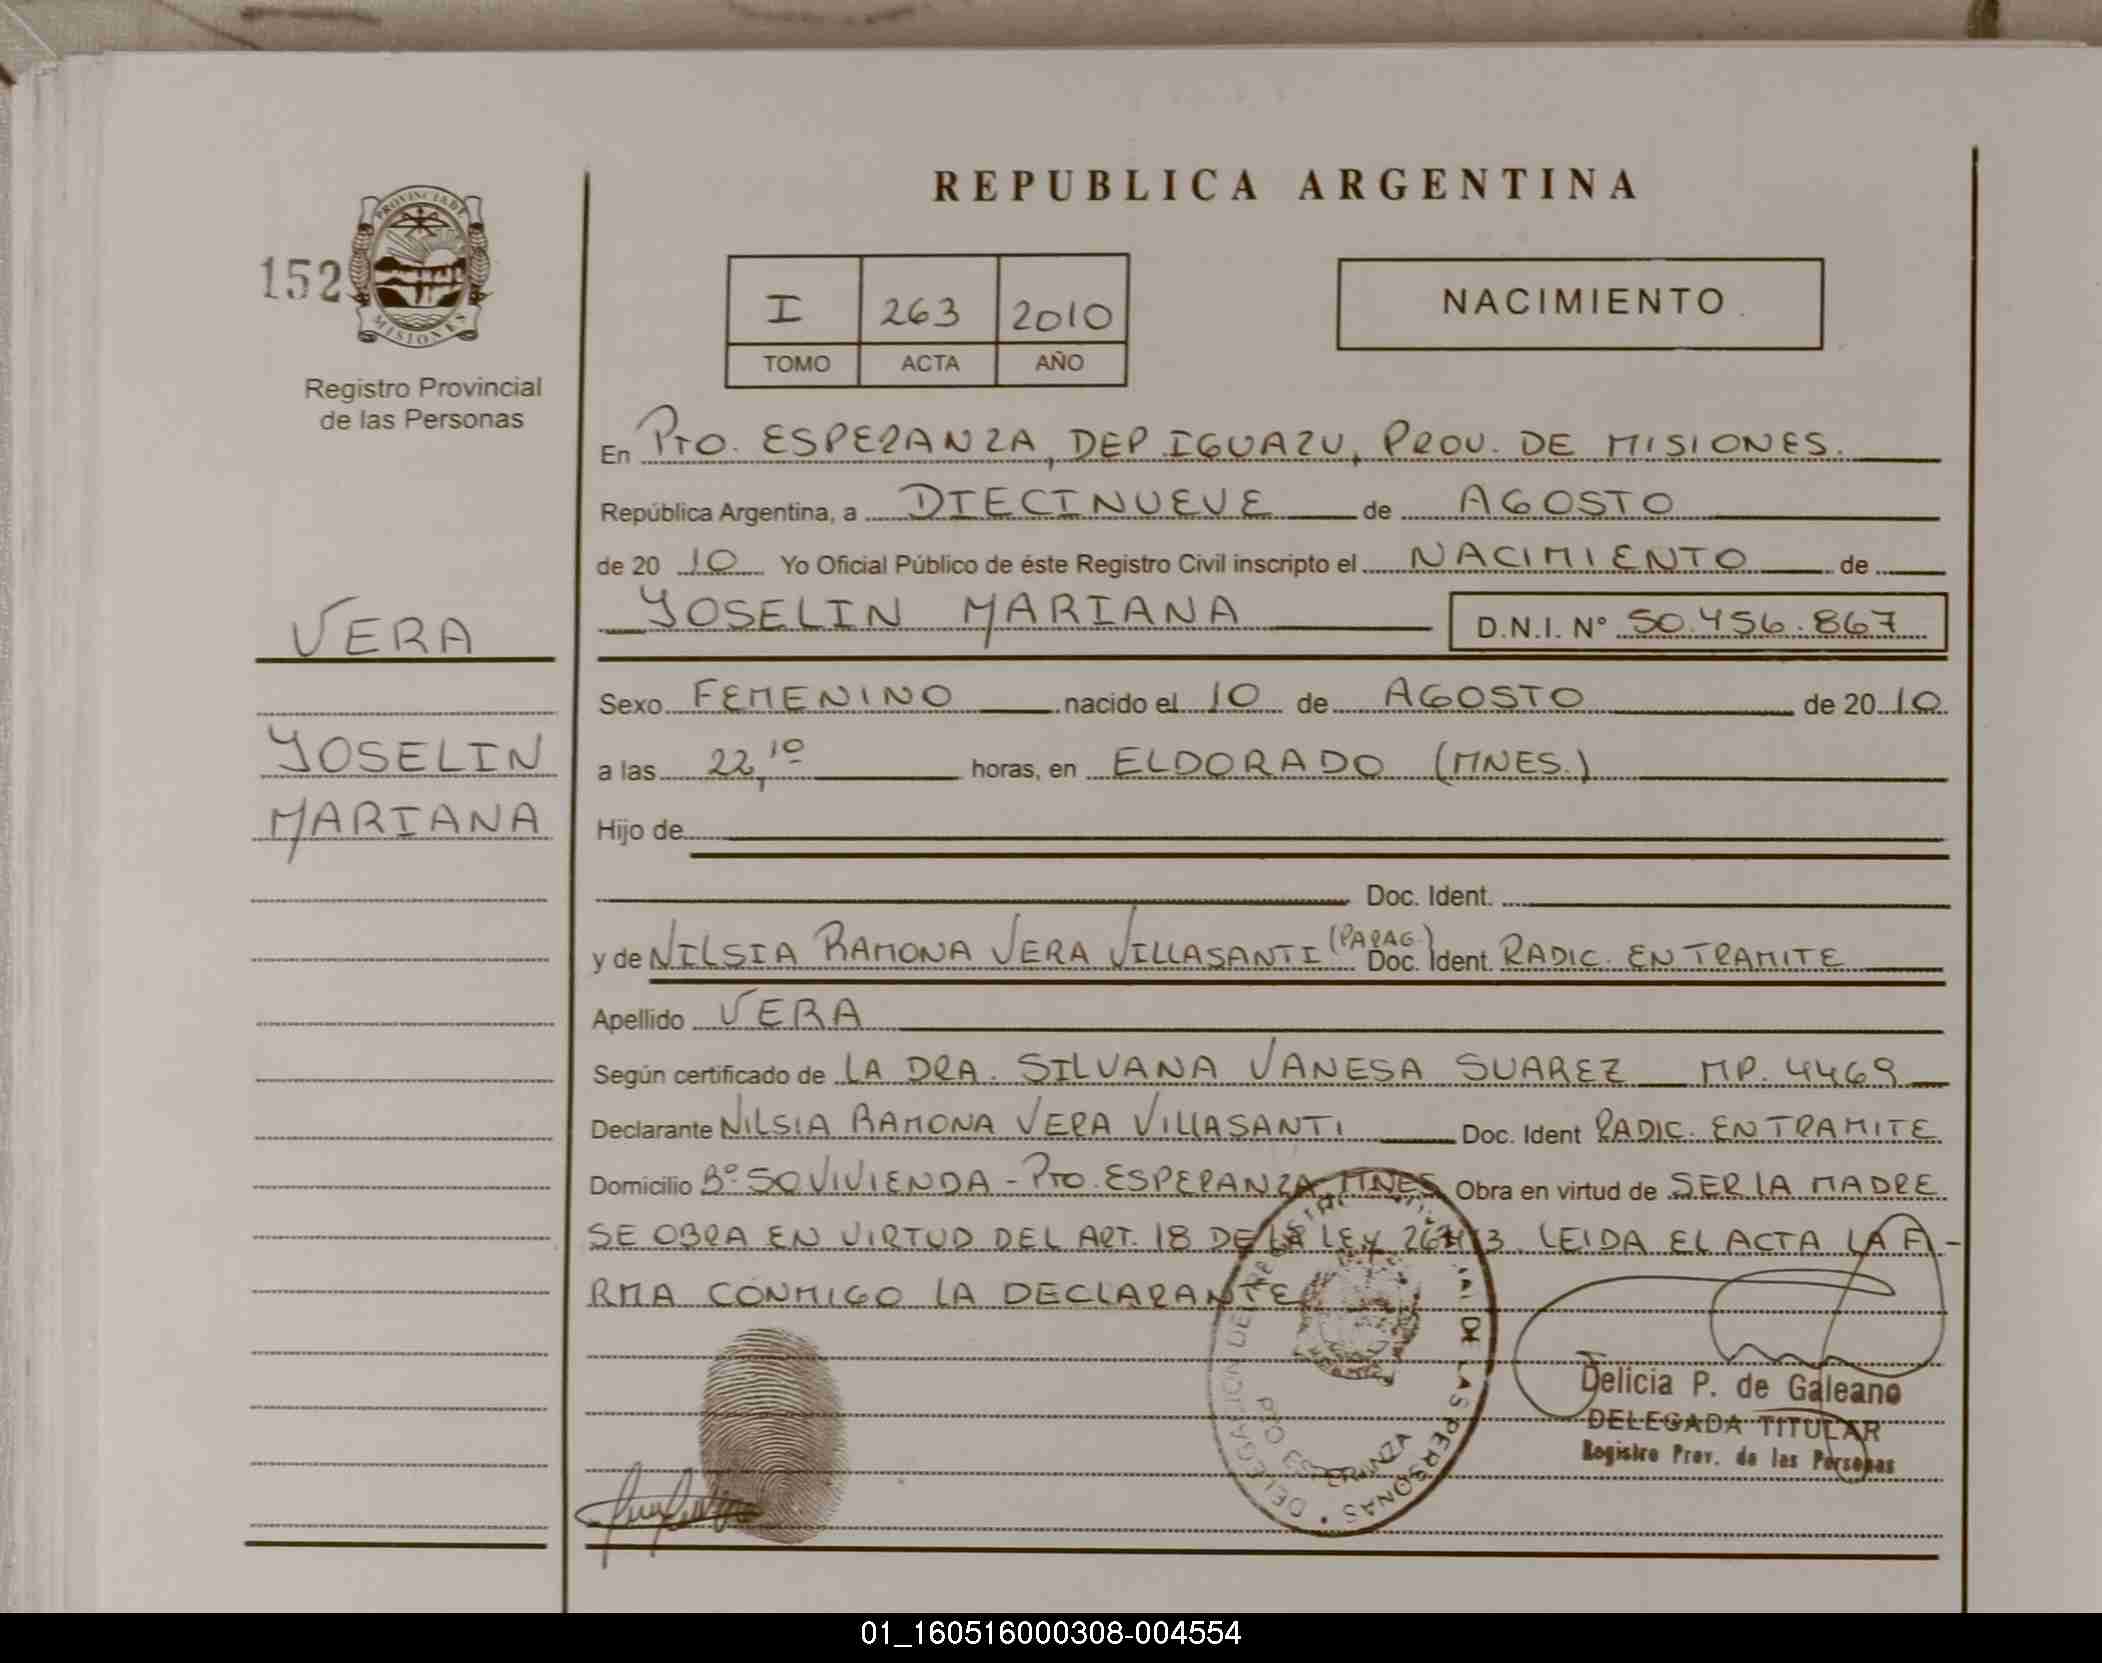 REPUBLICA ARGENTINA
PROVINCIA DE
MISIONES
152
Registro Provincial
de las Personas
I 263 2010
TOMO ACTA AÑO
NACIMIENTO
En PTO. ESPERANZA, DEP. IGUAZU, PROV. DE MISIONES.
República Argentina, a DIECINUEVE de AGOSTO
de 20 10 Yo Oficial Público de éste Registro Civil inscripto el NACIMIENTO de
YOSELIN MARIANA D.N.I. N° 50.456.867
VERA
YOSELIN
MARIANA
Sexo FEMENINO nacido el 10 de AGOSTO de 20 10
a las 22,10 horas, en ELDORADO (MNES.)
Hijo de
Doc. Ident.
y de NILSIA RAMONA VERA VILLASANTI (PARAG.) Doc. Ident. RADIC. EN TRAMITE
Apellido VERA
Según certificado de LA DRA. SILVANA VANESA SUAREZ MP. 4469
Declarante NILSIA RAMONA VERA VILLASANTI Doc. Ident RADIC. EN TRAMITE
Domicilio B° 50 VIVIENDA - PTO. ESPERANZA, MNES Obra en virtud de SER LA MADRE
SE OBRA EN VIRTUD DEL ART. 18 DE LA LEY 26413. LEIDA EL ACTA LA FI-
RMA CONMIGO LA DECLARANTE
DELEGACION DEL DE LAS PERSONAS
PTO ESPERANZA
Delicia P. de Galeano
DELEGADA TITULAR
Registro Prov. de las Personas
01_160516000308-004554